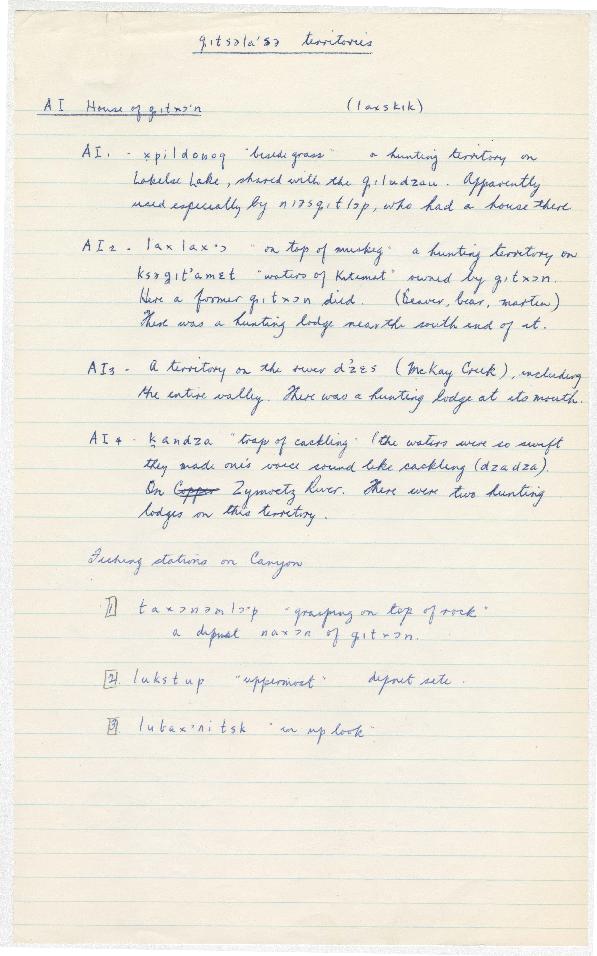 gɩtsəla'sə territories
AI House of gɩtxɔ'n (laxskɩk)
AI1 - xpildonoq "beside grass" a hunting territory on
Lakelse Lake, shared with the giludzau. Apparently
used especially by niɔsgɩtlɔp, who had a house there.
AI2 - lax lax'ɔ "on top of muskeg" a hunting territory on
ksəgɩt'amɛt "waters of Kitimat" owned by gɩtxɔn.
Here a former gɩtxɔn died. (Beaver, bear, marten)
There was a hunting lodge near the south end of it.
AI3 - A territory on the river d'zɛs (McKay Creek), including
the entire valley. There was a hunting lodge at its mouth.
AI4 - kandza "trap of cackling" (the waters were so swift
they made one's voice sound like cackling (dzadza).
On Copper Zymoetz River. There were two hunting
lodges on this territory.
Fishing stations on Canyon
1 taxɔnəmlɔ'p "grasping on top of rock"
a dipnet naxɔn of gɩtxɔn.
2 lukstup "uppermost" dipnet site.
3 lubax'nitsk "in up look"